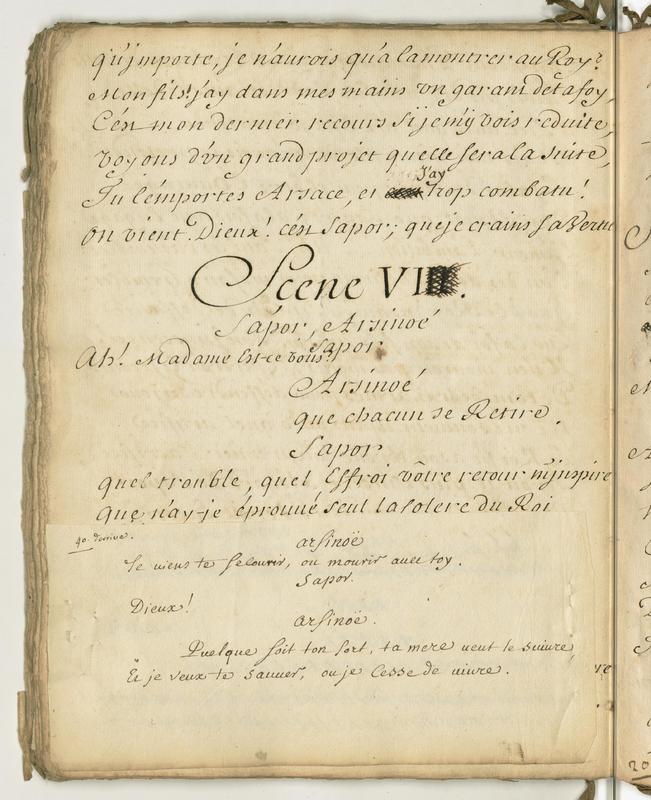 qu'importe, je n'aurois qu'a la montrer au Roy?
Mon fils! j'ay dans mes mains un garant de ta foy,
C'est mon dernier recours si je m'y vois reduite,
voyons d'un grand projet quelle sera la suite,
J'ay
Tu l'emportes Arsace, et trop combatu!
On vient. Dieux! c'est Sapor; que je crains sa Vertu
Scene VI
Sapor, Arsinoé
Sapor
Ah! Madame Est-ce vous?
Arsinoé
que chacun se Retire.
Sapor
quel trouble, quel Effroi vôtre retour m'inspire
Que n'ay-je éprouvé seul la colere du Roi
arsinoë
Je viens te secourir, ou mourir avec toy.
Sapor.
Dieux!
arsinoë.
Quelque soit ton sort, ta mere veut le suivre,
Et je veux te sauver, ou je Cesse de vivre.